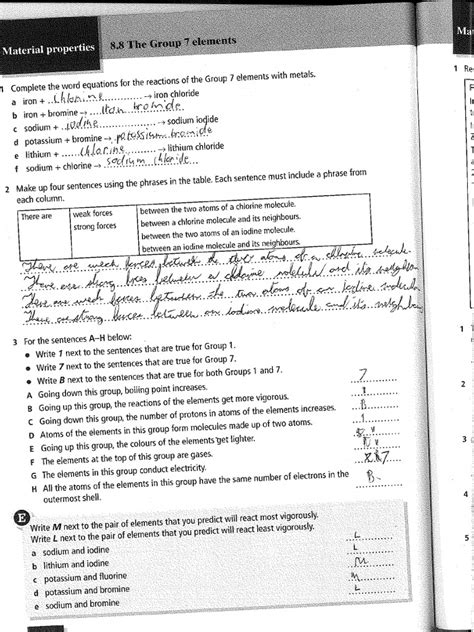 Material properties
8.8 The Group 7 elements
1 Complete the word equations for the reactions of the Group 7 elements with metals.
a iron + chlorine → iron chloride
b iron + bromine → iron bromide
c sodium + iodine → sodium iodide
d potassium + bromine → potassium bromide
e lithium + chlorine → lithium chloride
f sodium + chlorine → sodium chloride
2 Make up four sentences using the phrases in the table. Each sentence must include a phrase from
each column.
There are
weak forces
strong forces
between the two atoms of a chlorine molecule.
between a chlorine molecule and its neighbours.
between the two atoms of an iodine molecule.
between an iodine molecule and its neighbours.
There are weak forces between the atoms of a
There are strong between a chlorine molecule and its
There are weak forces between the two atoms of an iodine
There are strong forces between an iodine molecule and its
3 For the sentences A–H below:
• Write 1 next to the sentences that are true for Group 1.
• Write 7 next to the sentences that are true for Group 7.
• Write B next to the sentences that are true for both Groups 1 and 7.
A Going down this group, boiling point increases. 7
B Going up this group, the reactions of the elements get more vigorous. 1
C Going down this group, the number of protons in atoms of the elements increases. B
D Atoms of the elements in this group form molecules made up of two atoms. 1
E Going up this group, the colours of the elements get lighter.
F The elements at the top of this group are gases.
G The elements in this group conduct electricity.
H All the atoms of the elements in this group have the same number of electrons in the
outermost shell. B
E
Write M next to the pair of elements that you predict will react most vigorously.
Write L next to the pair of elements that you predict will react least vigorously.
a sodium and iodine L
b lithium and iodine L
c potassium and fluorine M
d potassium and bromine M
e sodium and bromine L
Mat
1 Re
1
2
3
4
5